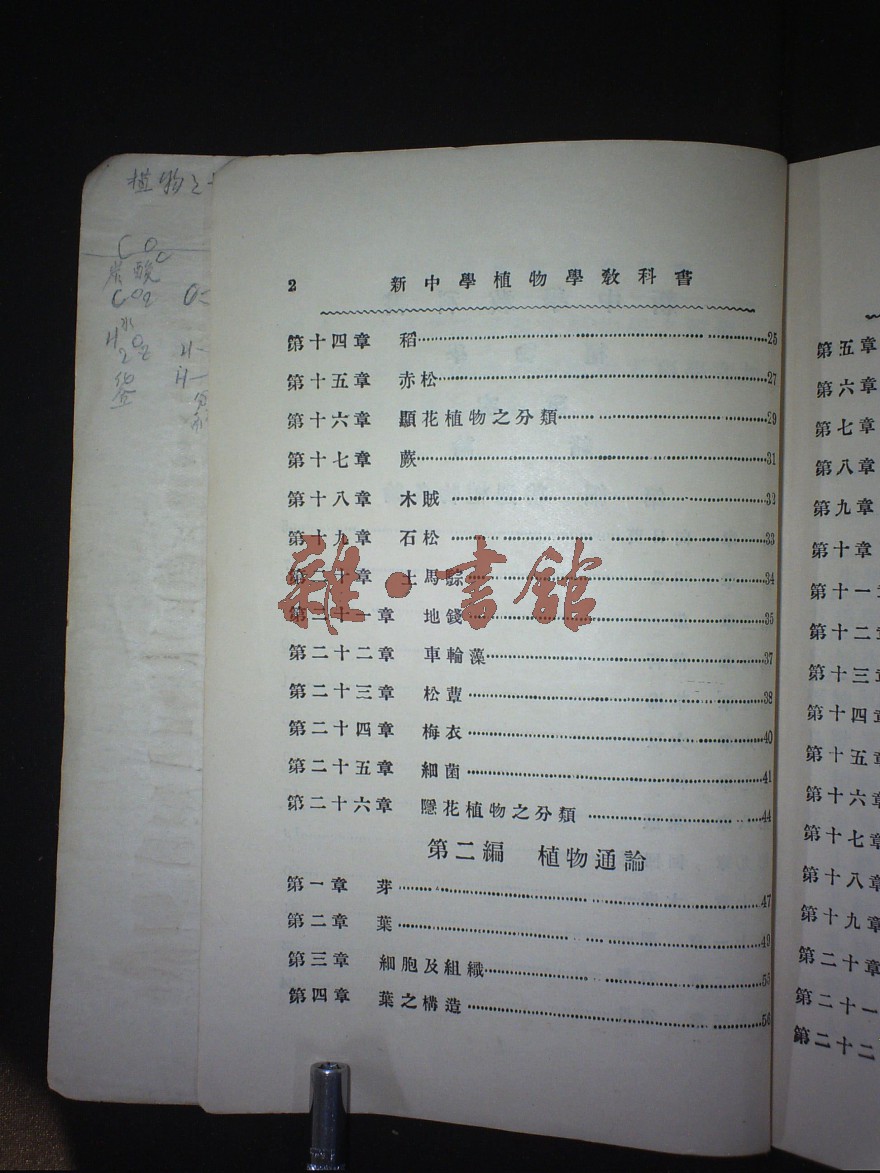 植物之
CO
炭酸
CO2
水
H2O2
H-
H-
2 新中學植物學敎科書
第十四章 稻 25
第十五章 赤松 27
第十六章 顯花植物之分類 29
第十七章 蕨 31
第十八章 木賊 32
第十九章 石松 33
第二十章 土馬騌 34
第二十一章 地錢 35
第二十二章 車輪藻 37
第二十三章 松蕈 38
第二十四章 梅衣 40
第二十五章 細菌 41
第二十六章 隱花植物之分類 44
第二編 植物通論
第一章 芽 47
第二章 葉 49
第三章 細胞及組織 55
第四章 葉之構造 56
雜·書館
第五章
第六章
第七章
第八章
第九章
第十章
第十一
第十二
第十三
第十四
第十五
第十六
第十七
第十八
第十九
第二十章
第二十一
第二十二